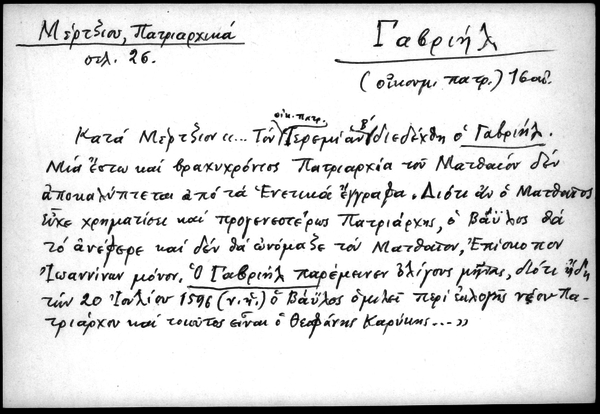 Μέρτζιου, Πατριαρχικά
σελ. 26.
Γαβριήλ
(οἰκουμ. πατρ.) 16 αἰ.
οἰκ. πατρ.
Κατά Μέρτζιον «... Τόν Ἱερεμίαν β΄ διεδέχθη ὁ Γαβριήλ.
Μία ἔστω καί βραχυχρόνιος Πατριαρχία τοῦ Ματθαίου δέν
ἀποκαλύπτεται ἀπό τά Ἑνετικά ἔγγραφα. Διότι ἄν ὁ Ματθαῖος
εἶχε χρηματίσει καί προγενεστέρως Πατριάρχης, ὁ Βάϋλος θά
τό ἀνέφερε καί δέν θά ὠνόμαζε τόν Ματθαῖον, Ἐπίσκοπον
Ἰωαννίνων μόνον. Ὁ Γαβριήλ παρέμεινεν ὀλίγους μῆνας, διότι ἤδη
τήν 20 Ἰουλίου 1596 (ν.ἡ.) ὁ Βάϋλος ὁμιλεῖ περί ἐκλογῆς νέου Πα-
τριάρχου καί τοιοῦτος εἶναι ὁ Θεοφάνης Καρύκης...»